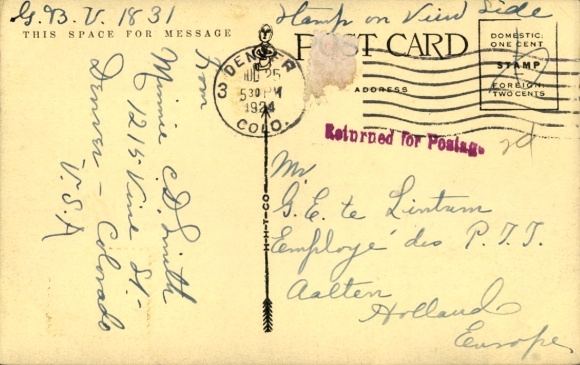 G.B.V. 1831
Stamp on View Side
THIS SPACE FOR MESSAGE
POST CARD
DOMESTIC
ONE CENT
STAMP
FOREIGN
TWO CENTS
ADDRESS
DENVER
3
25
530 PM
1924
COLO.
Returned for Postage
From
Minnie C.D. Smith
1215 Vine St.-
Denver - Colorado
U.S.A
H-H-T-CO.
Mr.
G. E. te Lintum
Employé des P.T.T.
Aalten
Holland
Europe